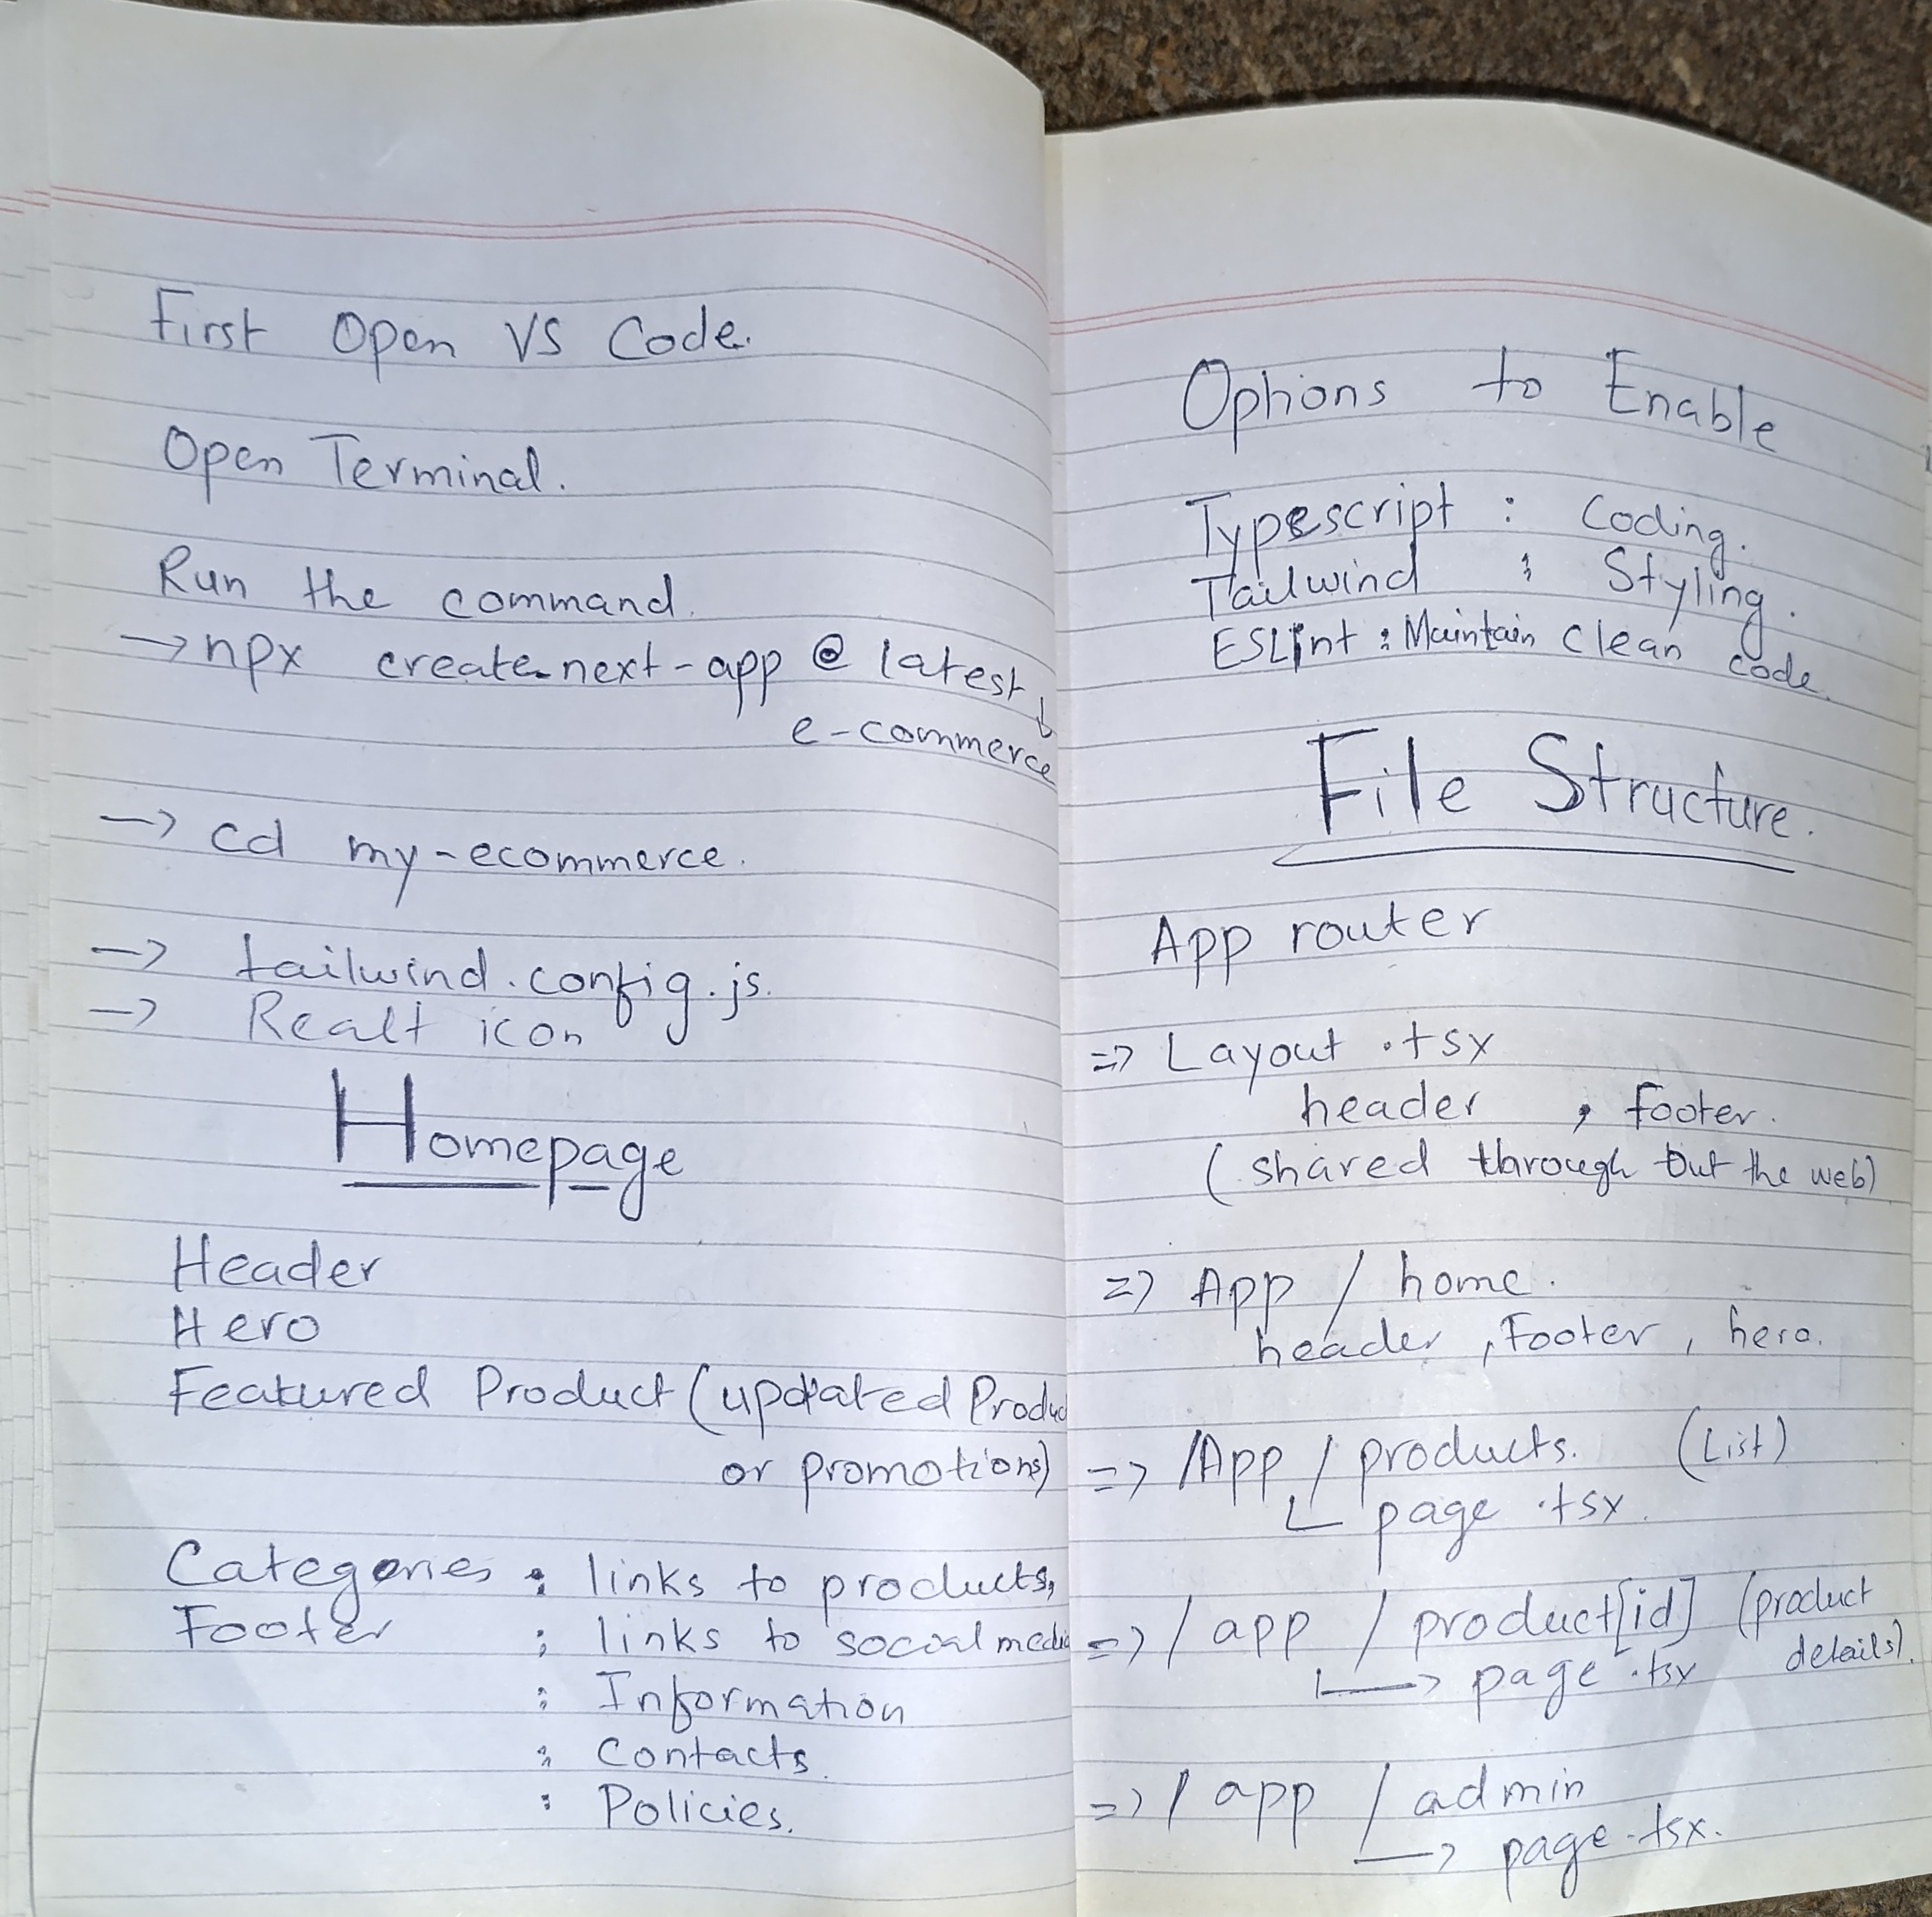 First Open VS Code.
Open Terminal.
Run the command.
→ npx create-next-app @ latest
↓
e-commerce
→ cd my-ecommerce.
→ tailwind.config.js.
→ Realt icon
Homepage
Header
Hero
Featured Product (updated Produc
or promotions)
Categories : links to products,
Footer : links to social media
: Information
: Contacts.
: Policies.
Options to Enable
Typescript : Coding.
Tailwind : Styling.
ESLint : Maintain clean code.
File Structure.
App router
=> Layout .tsx
header , footer.
(shared through out the web)
=> App / home.
header , Footer , hero.
=> /App / products. (List)
page .tsx.
=> / app / product[id] (product
details).
→ page .tsx
=> / app / admin
→ page.tsx.